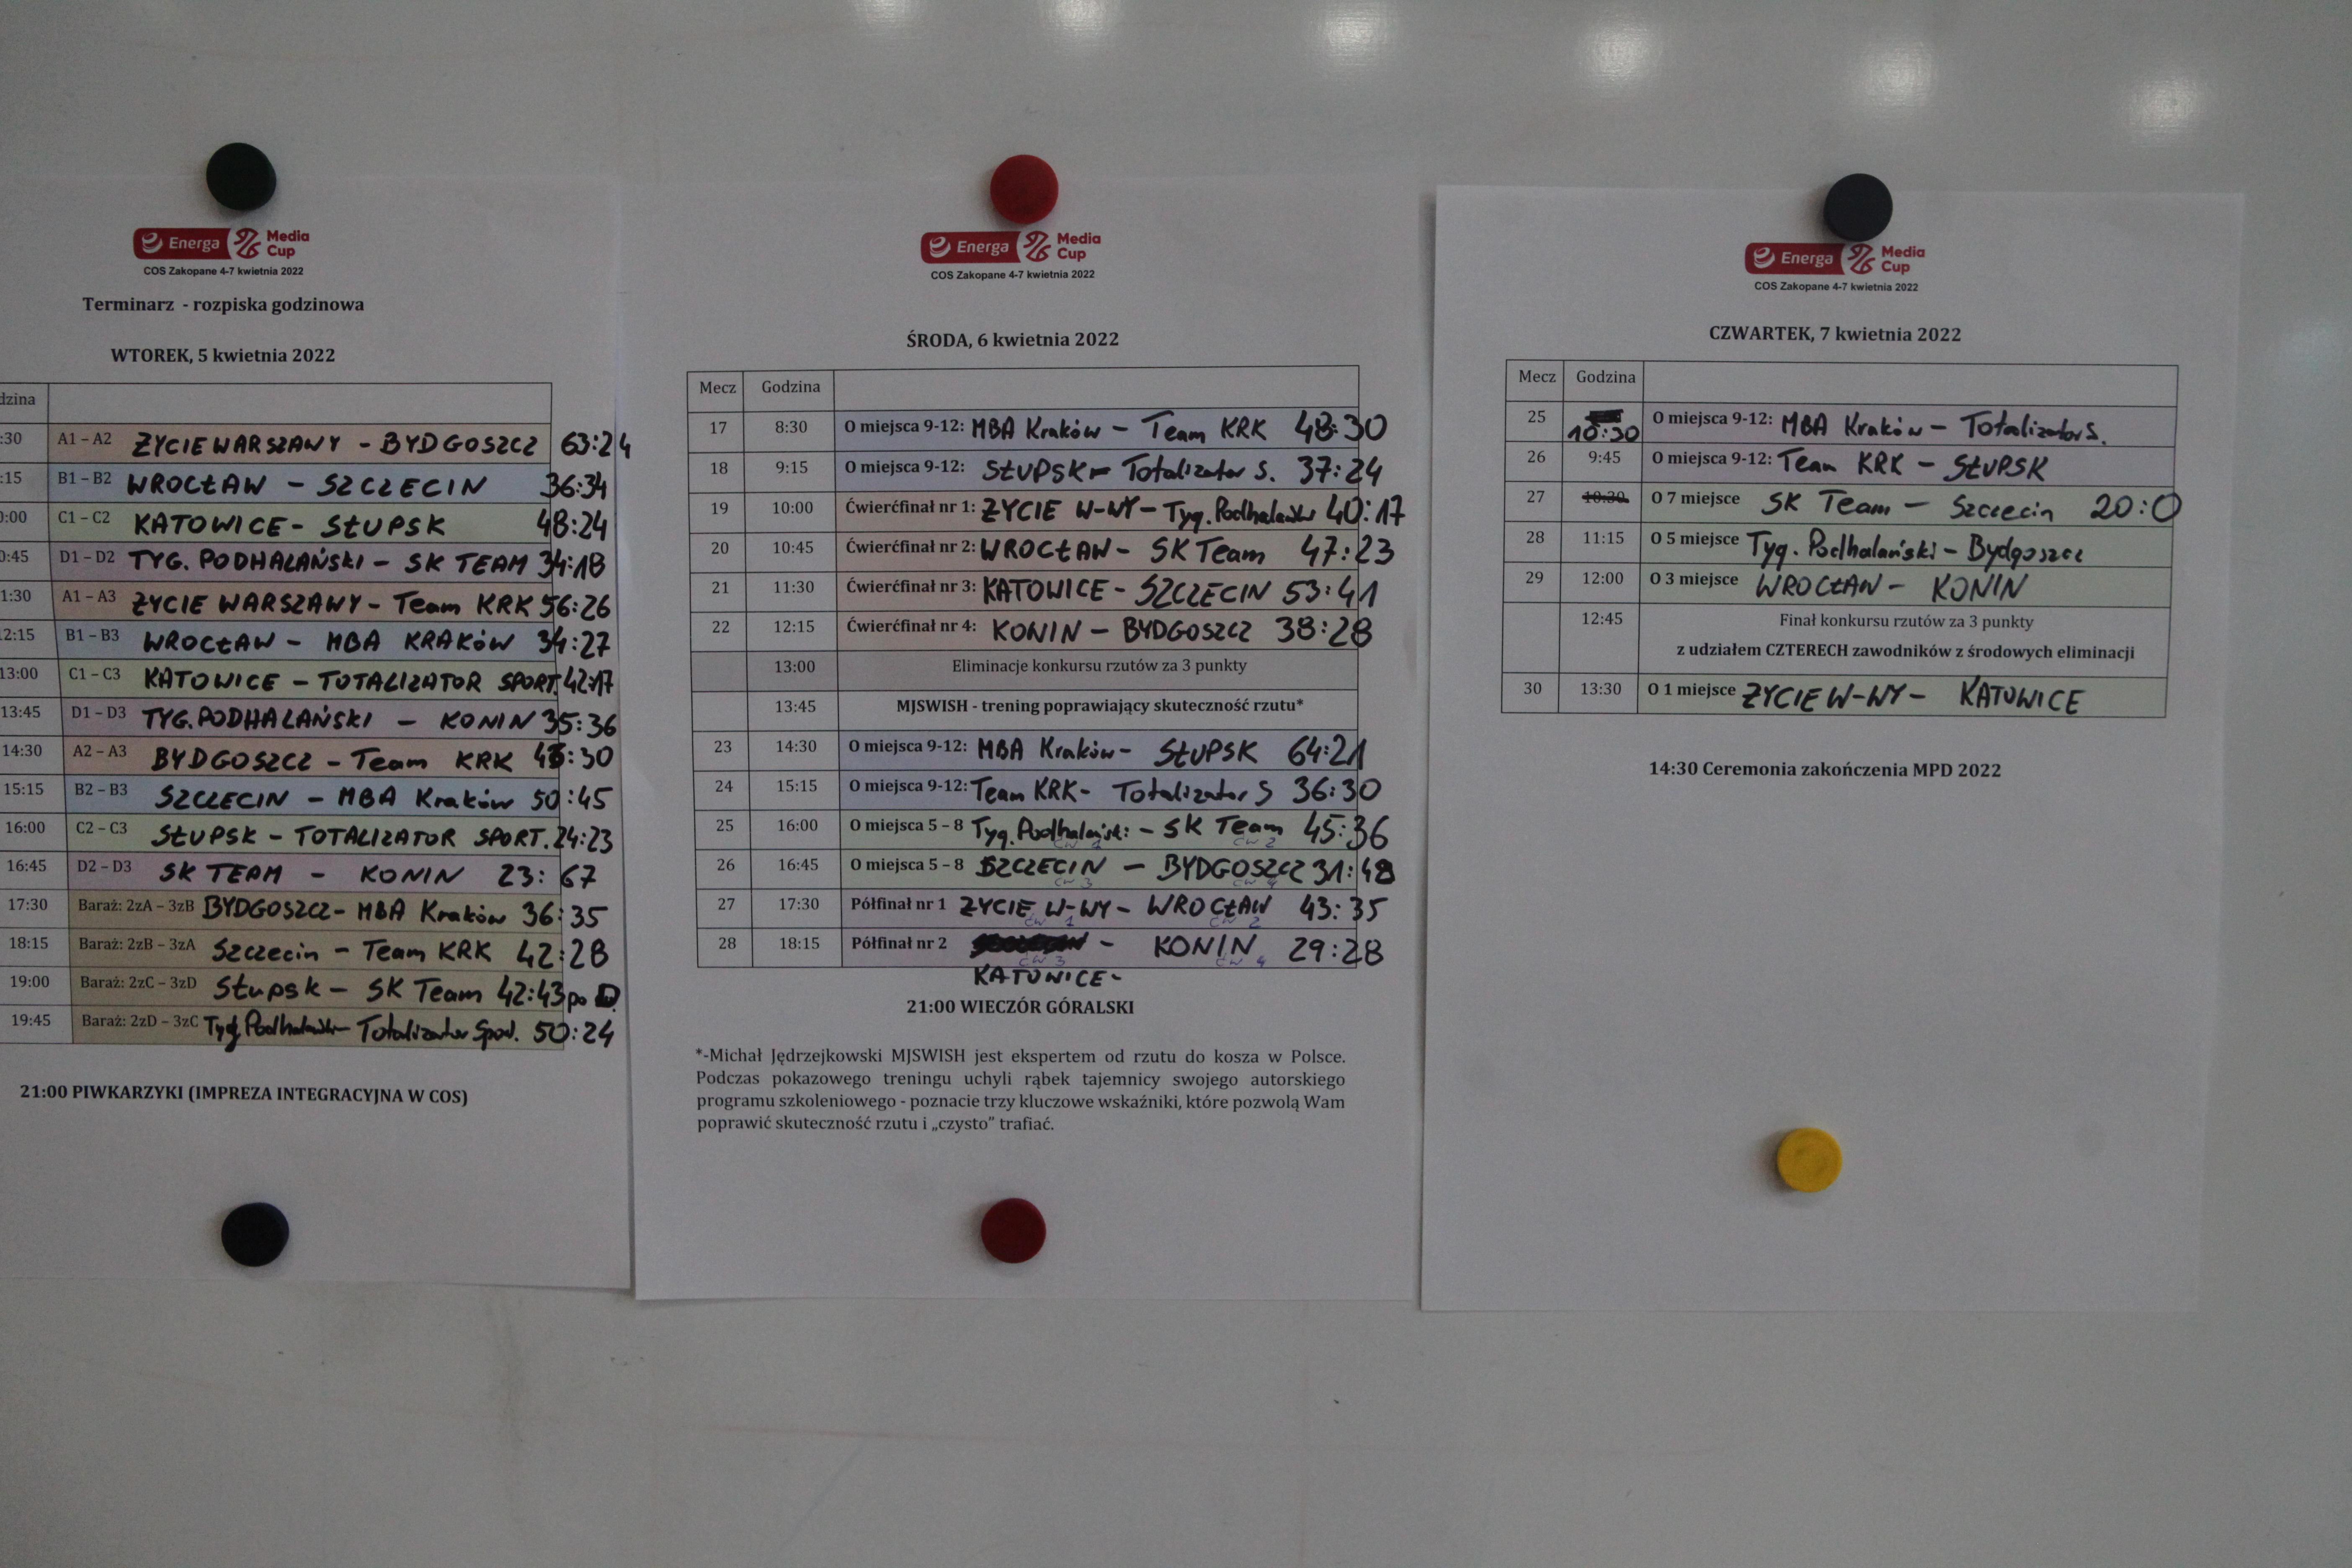 Energa Media Cup
COS Zakopane 4-7 kwietnia 2022
Terminarz - rozpiska godzinowa
WTOREK, 5 kwietnia 2022
dzina
:30 A1 – A2 ŻYCIE WARSZAWY - BYDGOSZCZ 63:24
:15 B1 – B2 WROCŁAW - SZCZECIN 36:34
0:00 C1 – C2 KATOWICE - SŁUPSK 48:24
0:45 D1 – D2 TYG. PODHALAŃSKI - SK TEAM 34:18
1:30 A1 – A3 ŻYCIE WARSZAWY - Team KRK 56:26
12:15 B1 – B3 WROCŁAW - MBA KRAKÓW 34:27
13:00 C1 – C3 KATOWICE - TOTALIZATOR SPORT. 42:17
13:45 D1 – D3 TYG. PODHALAŃSKI - KONIN 35:36
14:30 A2 – A3 BYDGOSZCZ - Team KRK :30
15:15 B2 – B3 SZCZECIN - MBA Kraków 50:45
16:00 C2 – C3 SŁUPSK - TOTALIZATOR SPORT. 24:23
16:45 D2 – D3 SK TEAM - KONIN 23:67
17:30 Baraż: 2zA – 3zB BYDGOSZCZ - MBA Kraków 36:35
18:15 Baraż: 2zB – 3zA Szczecin - Team KRK 42:28
19:00 Baraż: 2zC – 3zD Słupsk - SK Team 42:43 po D.
19:45 Baraż: 2zD – 3zC Tyg. Podhalański - Totalizator Spod. 50:24
21:00 PIWKARZYKI (IMPREZA INTEGRACYJNA W COS)
Energa Media Cup
COS Zakopane 4-7 kwietnia 2022
ŚRODA, 6 kwietnia 2022
Mecz Godzina
17 8:30 O miejsca 9-12: MBA Kraków - Team KRK 48:30
18 9:15 O miejsca 9-12: SŁUPSK - Totalizator S. 37:24
19 10:00 Ćwierćfinał nr 1: ŻYCIE W-WY - Tyg. Podhalański 40:17
20 10:45 Ćwierćfinał nr 2: WROCŁAW - SK Team 47:23
21 11:30 Ćwierćfinał nr 3: KATOWICE - SZCZECIN 53:41
22 12:15 Ćwierćfinał nr 4: KONIN - BYDGOSZCZ 38:28
13:00 Eliminacje konkursu rzutów za 3 punkty
13:45 MJSWISH - trening poprawiający skuteczność rzutu*
23 14:30 O miejsca 9-12: MBA Kraków - SŁUPSK 64:21
24 15:15 O miejsca 9-12: Team KRK - Totalizator S 36:30
25 16:00 O miejsca 5 – 8 Tyg. Podhalański - SK Team 45:36
ćw 1 ćw 2
26 16:45 O miejsca 5 – 8 SZCZECIN - BYDGOSZCZ 31:48
ćw 3 ćw 4
27 17:30 Półfinał nr 1 ŻYCIE W-WY - WROCŁAW 43:35
ćw 1 ćw 2
28 18:15 Półfinał nr 2 - KONIN 29:28
ćw 3 ćw 4
KATOWICE -
21:00 WIECZÓR GÓRALSKI
*-Michał Jędrzejkowski MJSWISH jest ekspertem od rzutu do kosza w Polsce.
Podczas pokazowego treningu uchyli rąbek tajemnicy swojego autorskiego
programu szkoleniowego - poznacie trzy kluczowe wskaźniki, które pozwolą Wam
poprawić skuteczność rzutu i „czysto” trafiać.
Energa Media Cup
COS Zakopane 4-7 kwietnia 2022
CZWARTEK, 7 kwietnia 2022
Mecz Godzina
25 10:30 O miejsca 9-12: MBA Kraków - Totalizator S.
26 9:45 O miejsca 9-12: Team KRK - SŁUPSK
27 10:30 O 7 miejsce SK Team - Szczecin 20:0
28 11:15 O 5 miejsce Tyg. Podhalański - Bydgoszcz
29 12:00 O 3 miejsce WROCŁAW - KONIN
12:45 Finał konkursu rzutów za 3 punkty
z udziałem CZTERECH zawodników z środowych eliminacji
30 13:30 O 1 miejsce ŻYCIE W-WY - KATOWICE
14:30 Ceremonia zakończenia MPD 2022